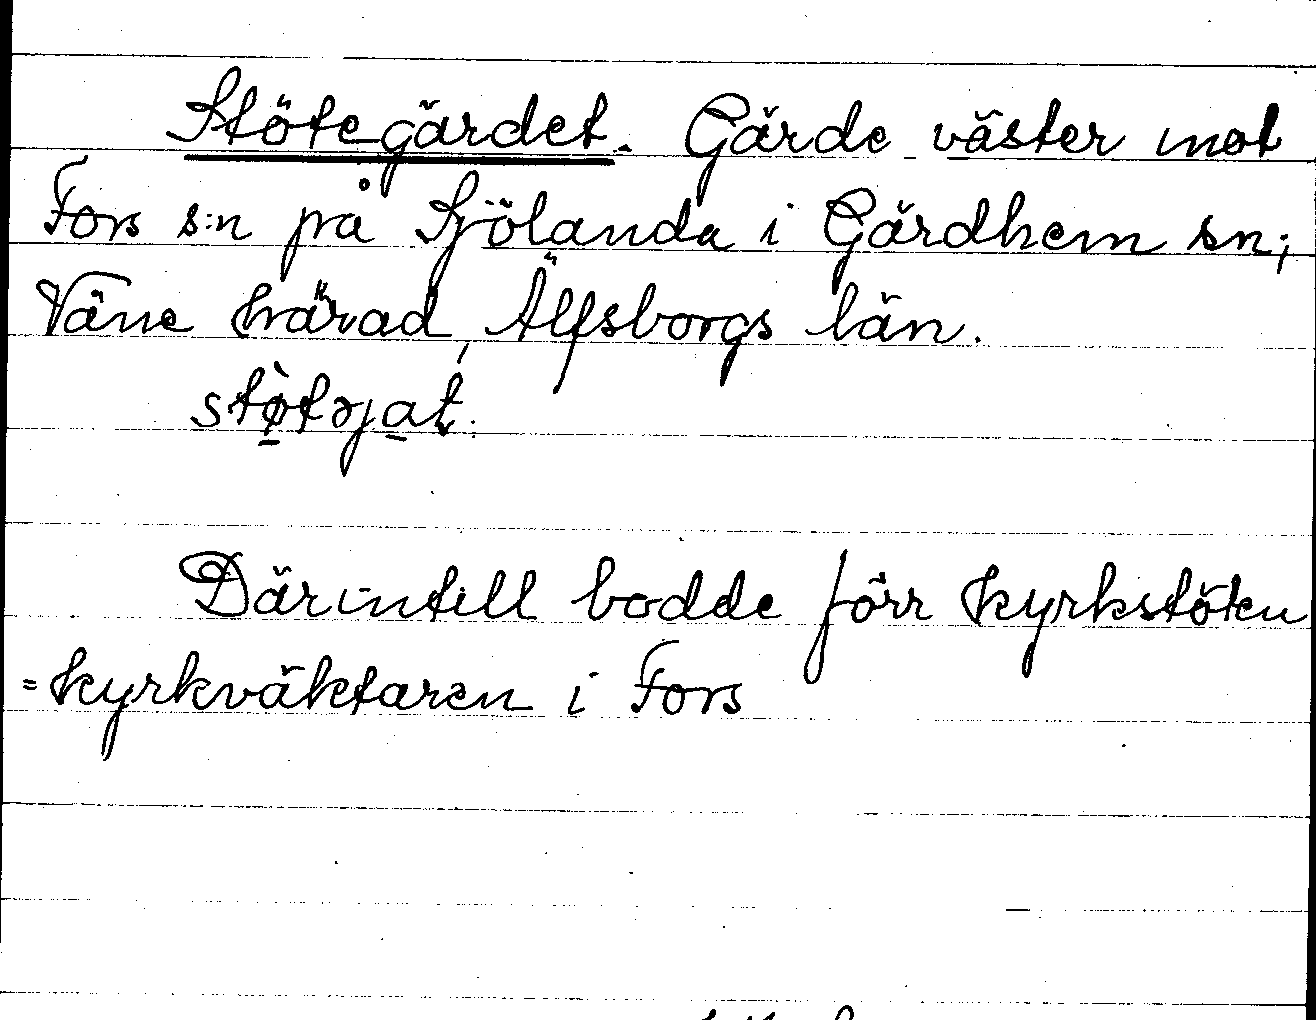 Stötegärdet. Gärde väster mot
Fors s:n på Sjölanda i Gärdhem sn;
Väne härad, Älfsborgs län.
stø̀təjat.
Därintill bodde förr kyrkstöten
=kyrkväktaren i Fors